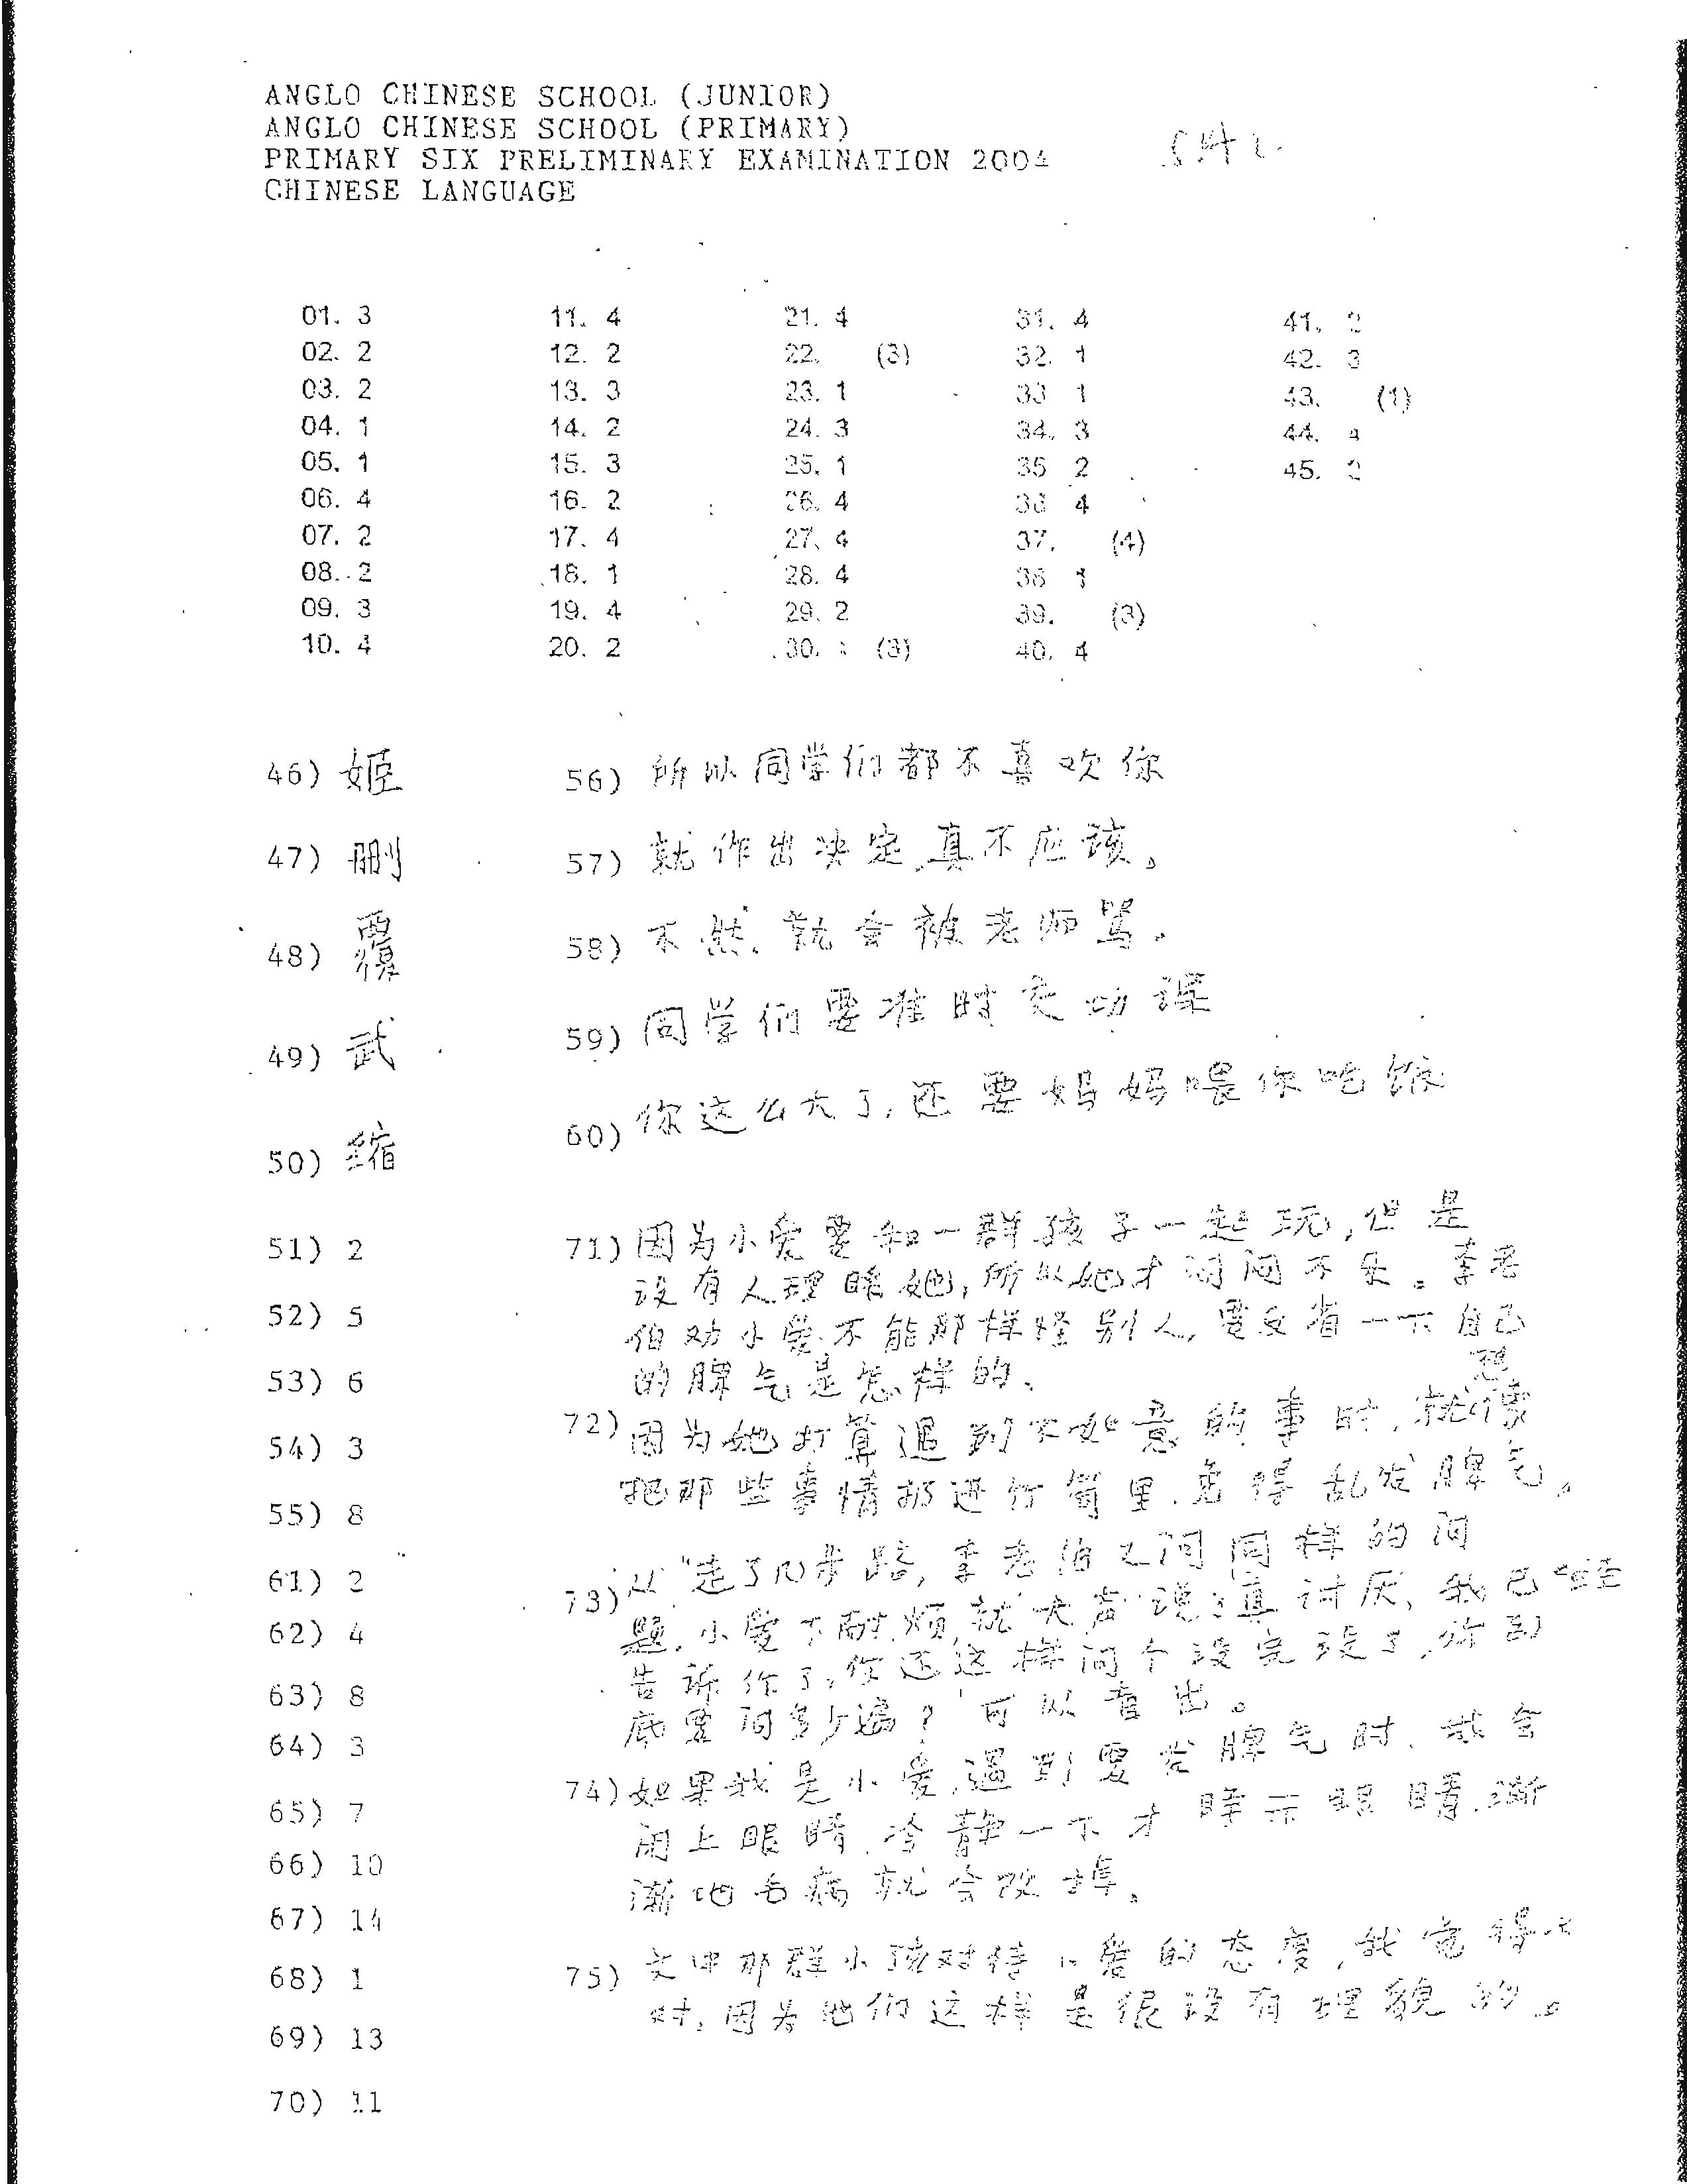 ANGLO CHINESE SCHOOL (JUNIOR)
ANGLO CHINESE SCHOOL (PRIMARY)
PRIMARY SIX PRELIMINARY EXAMINATION 2004
CHINESE LANGUAGE
01. 3 11. 4 21. 4 31. 4 41. 2
02. 2 12. 2 22. (3) 32. 1 42. 3
03. 2 13. 3 23. 1 33 1 43. (1)
04. 1 14. 2 24. 3 34. 3 44. 4
05. 1 15. 3 25. 1 35 2 45. 2
06. 4 16. 2 26. 4 36 4
07. 2 17. 4 27. 4 37. (4)
08. 2 18. 1 28. 4 38 1
09. 3 19. 4 29. 2 39. (3)
10. 4 20. 2 30. (3) 40. 4
46) 姬
47) 删
48) 覆
49) 武
50) 缩
51) 2
52) 5
53) 6
54) 3
55) 8
61) 2
62) 4
63) 8
64) 3
65) 7
66) 10
67) 14
68) 1
69) 13
70) 11
56) 所以同学们都不喜欢你
57) 就作出决定,真不应该。
58) 不然,就会被老师骂。
59) 同学们要准时交功课
60) 你这么大了,还要妈妈喂你吃饭
71) 因为小爱要和一群孩子一起玩,但是
没有人理睬她,所以她才闷闷不乐。李老
伯劝小爱不能那样怪别人,要反省一下自己
的脾气是怎样的。
72) 因为她打算遇到不如意的事时,就想像
把那些事情扔进竹筒里,免得乱发脾气。
73) 从“走了几步路,李老伯又问同样的问
题,小爱不耐烦,就大声说:真讨厌,我已经
告诉你了,你还这样问个没完没了,你到
底要问多少遍?”可以看出。
74) 如果我是小爱,遇到要发脾气时,我会
闭上眼睛,冷静一下才睁示眼睛,渐
渐地毛病就会改掉。
75) 文中那群小孩对待小爱的态度,我觉得不
对,因为他们这样是很没有理貌的。